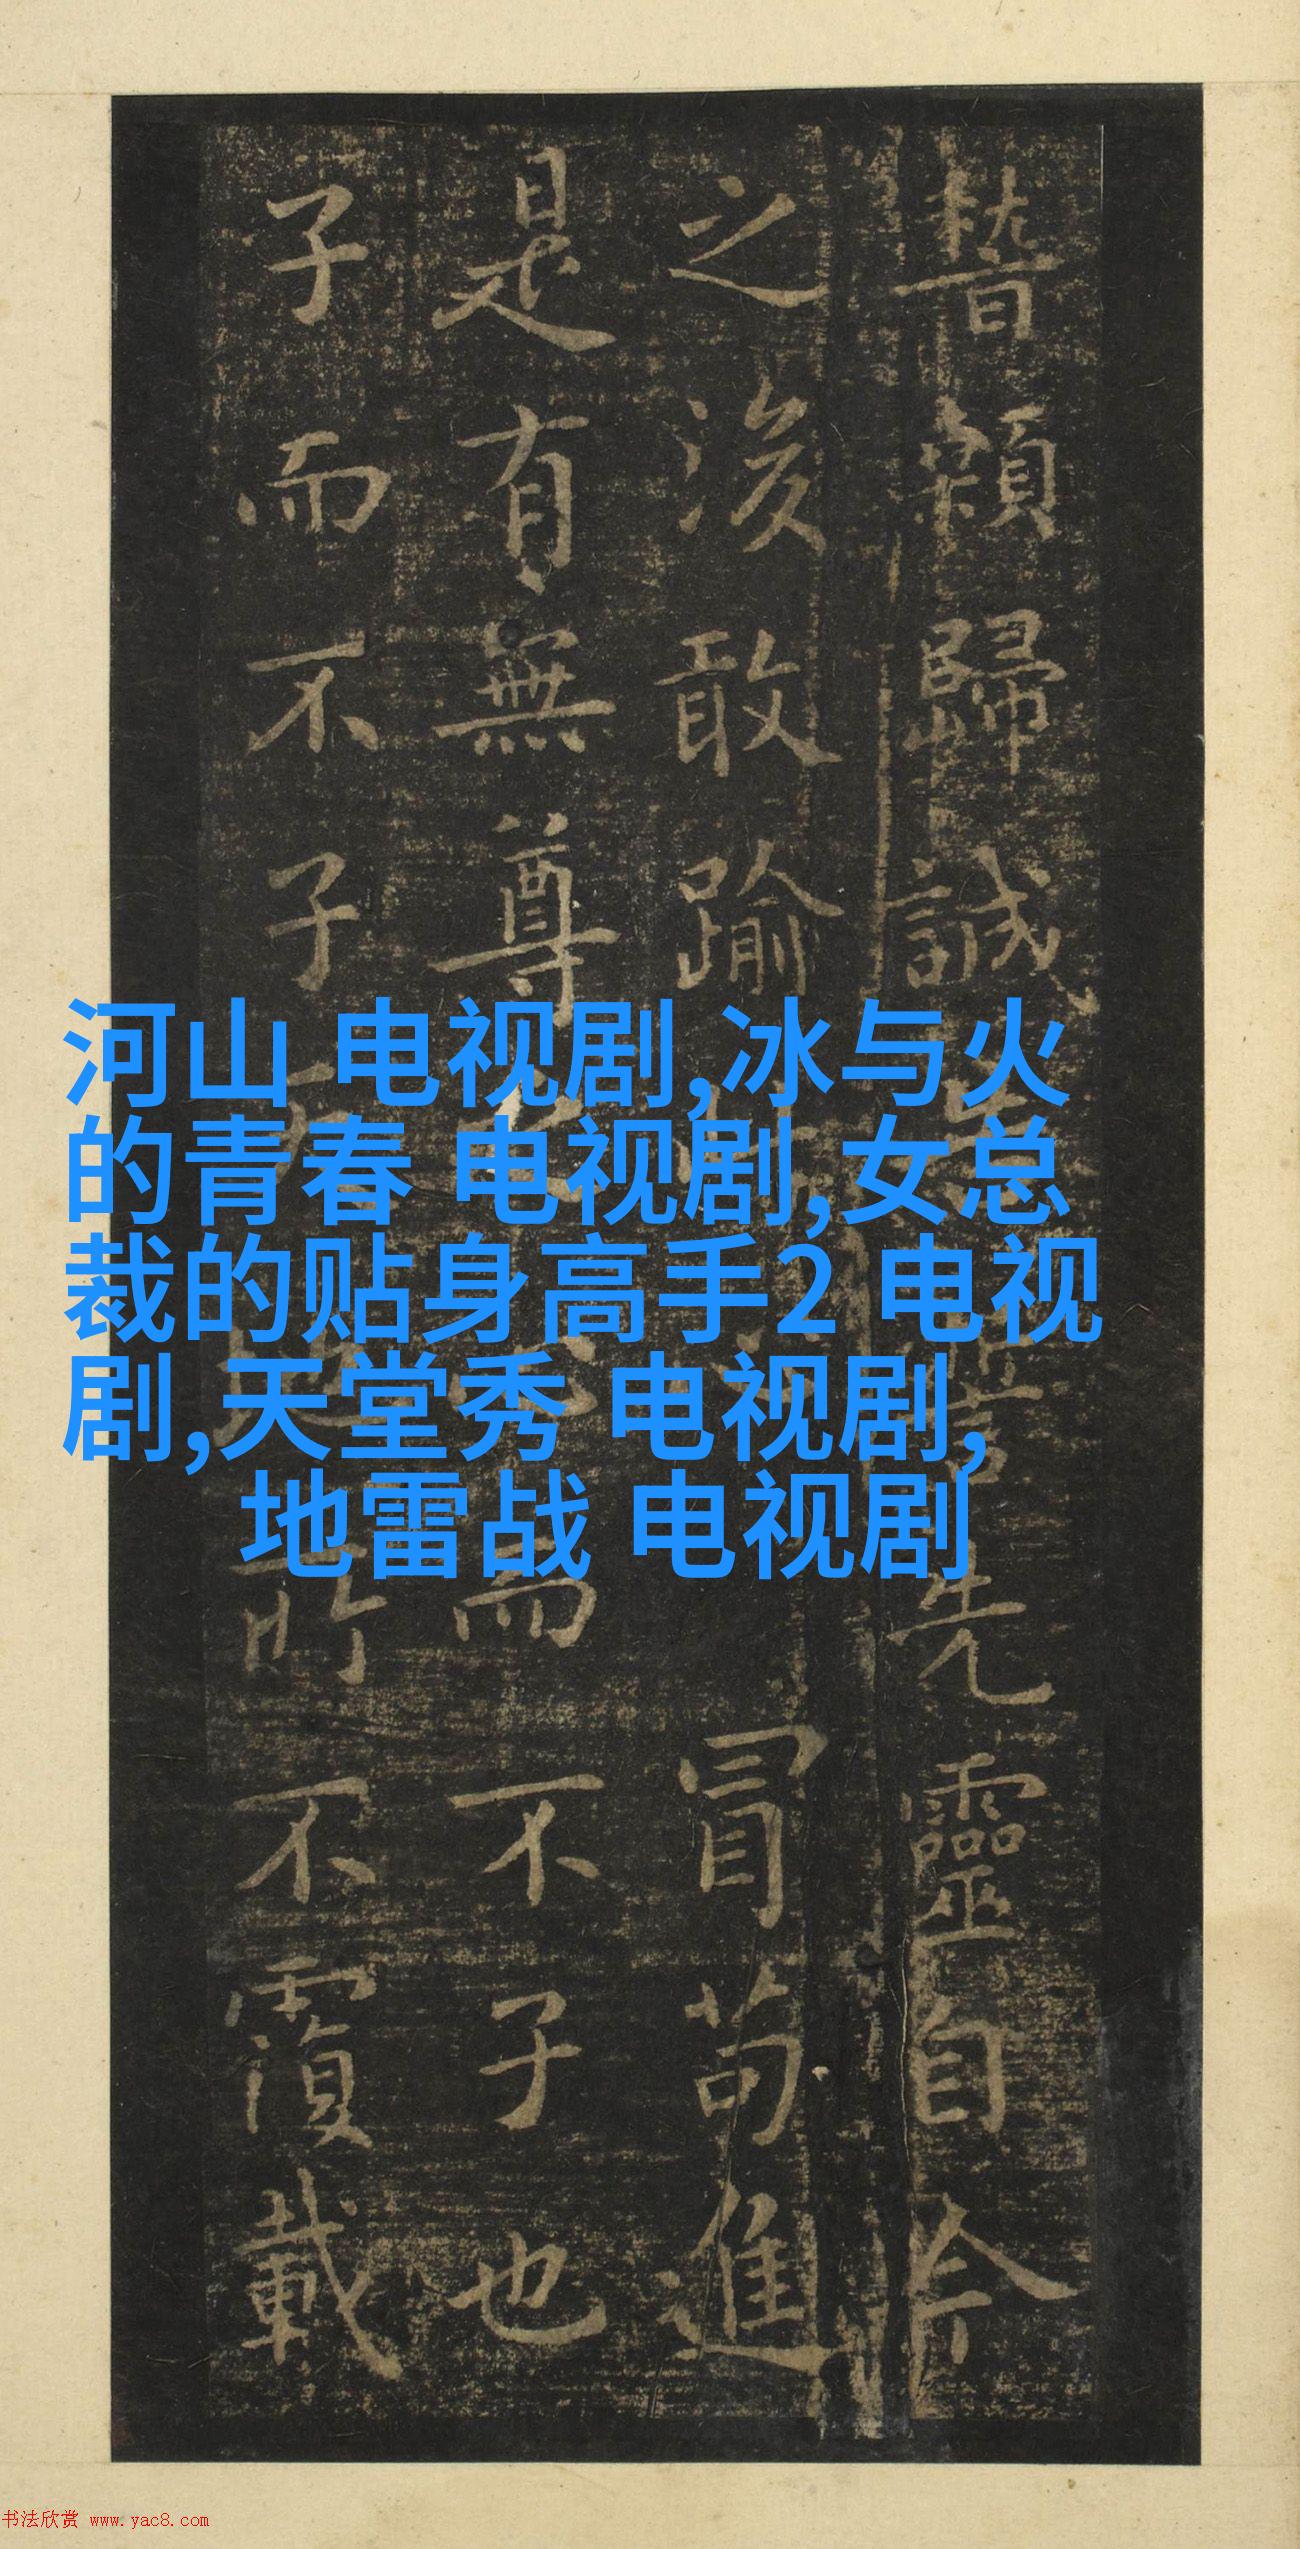 稽顙歸誠告誓先靈自今
之後敢踰此冒苟進
是有無尊而不子也
子而不子天地所不覆載
河山 电视剧,冰与火
的青春 电视剧,女总
裁的贴身高手2 电视
剧,天堂秀 电视剧,
地雷战 电视剧
书法欣赏 www.yac8.com